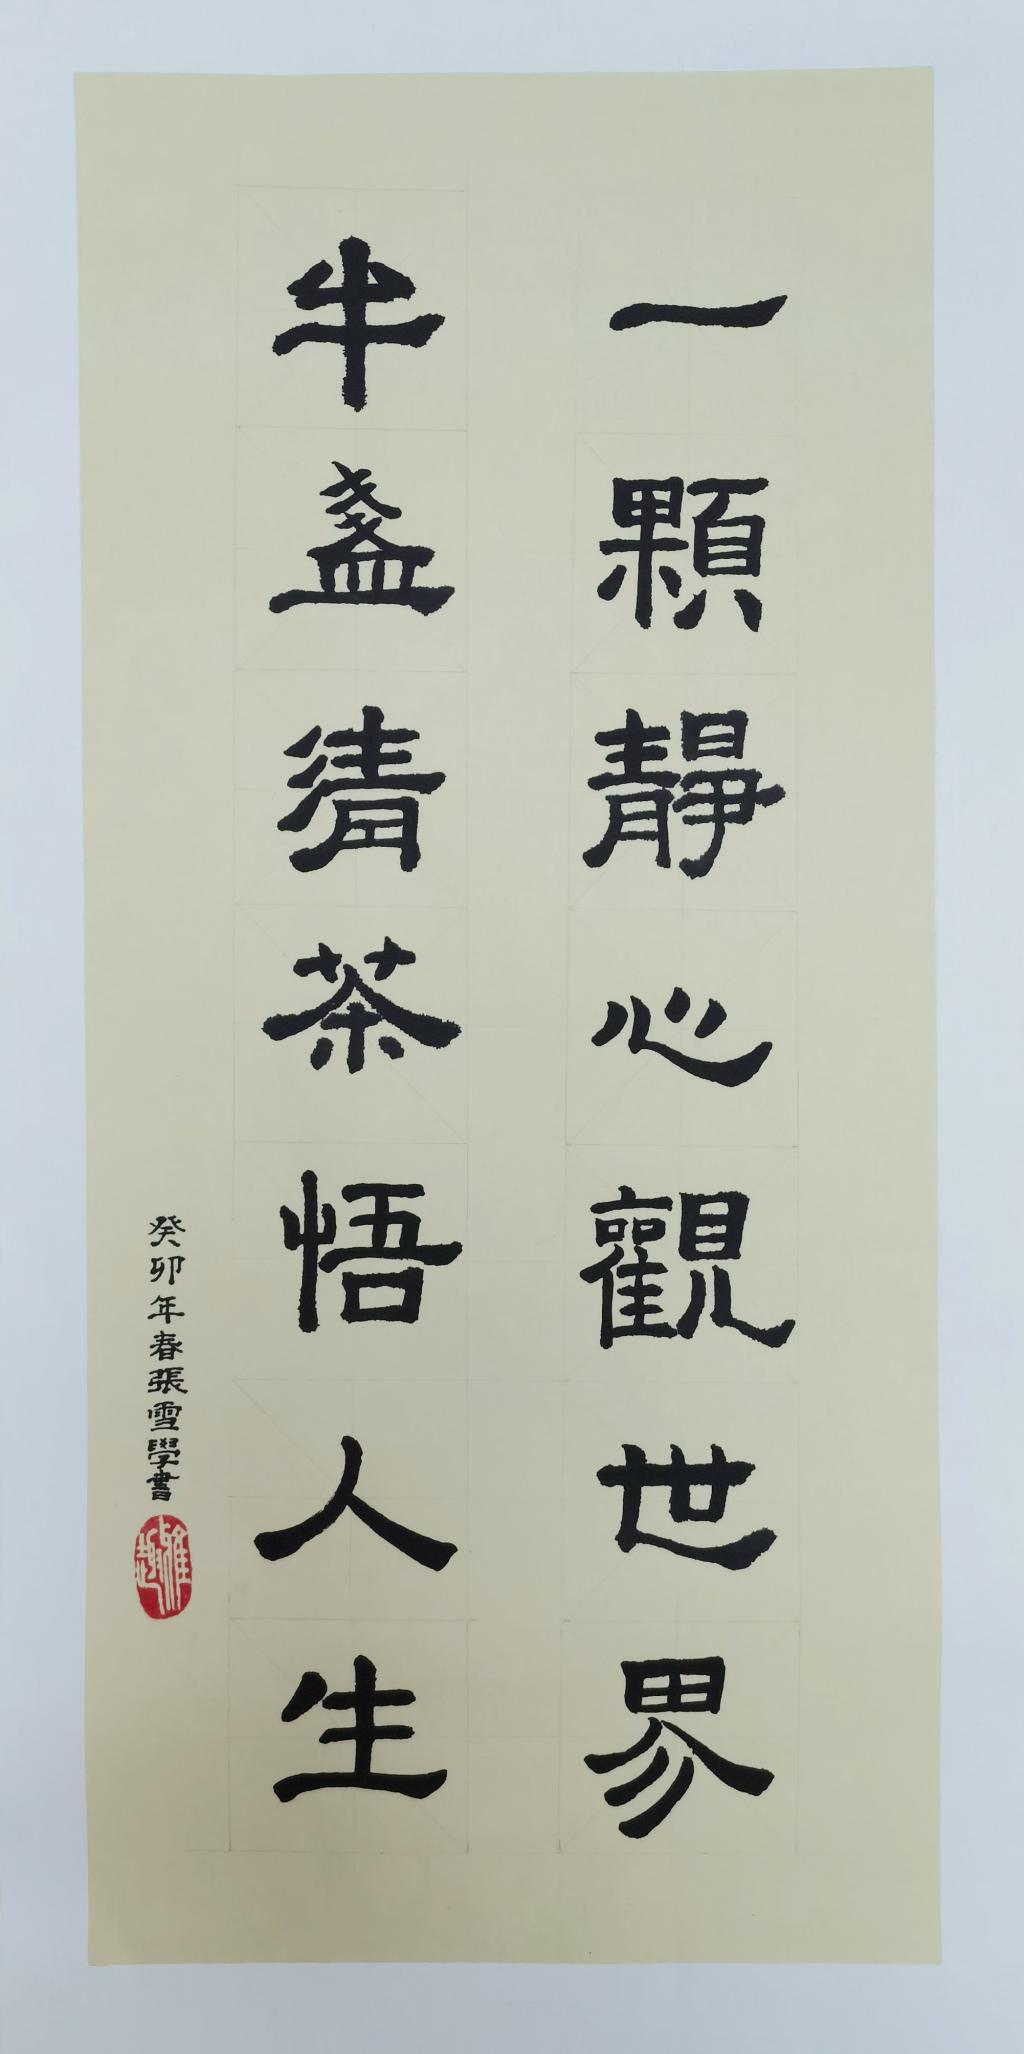 一顆靜心觀世界
半盞清茶悟人生
癸卯年春張雪學書
雅趣